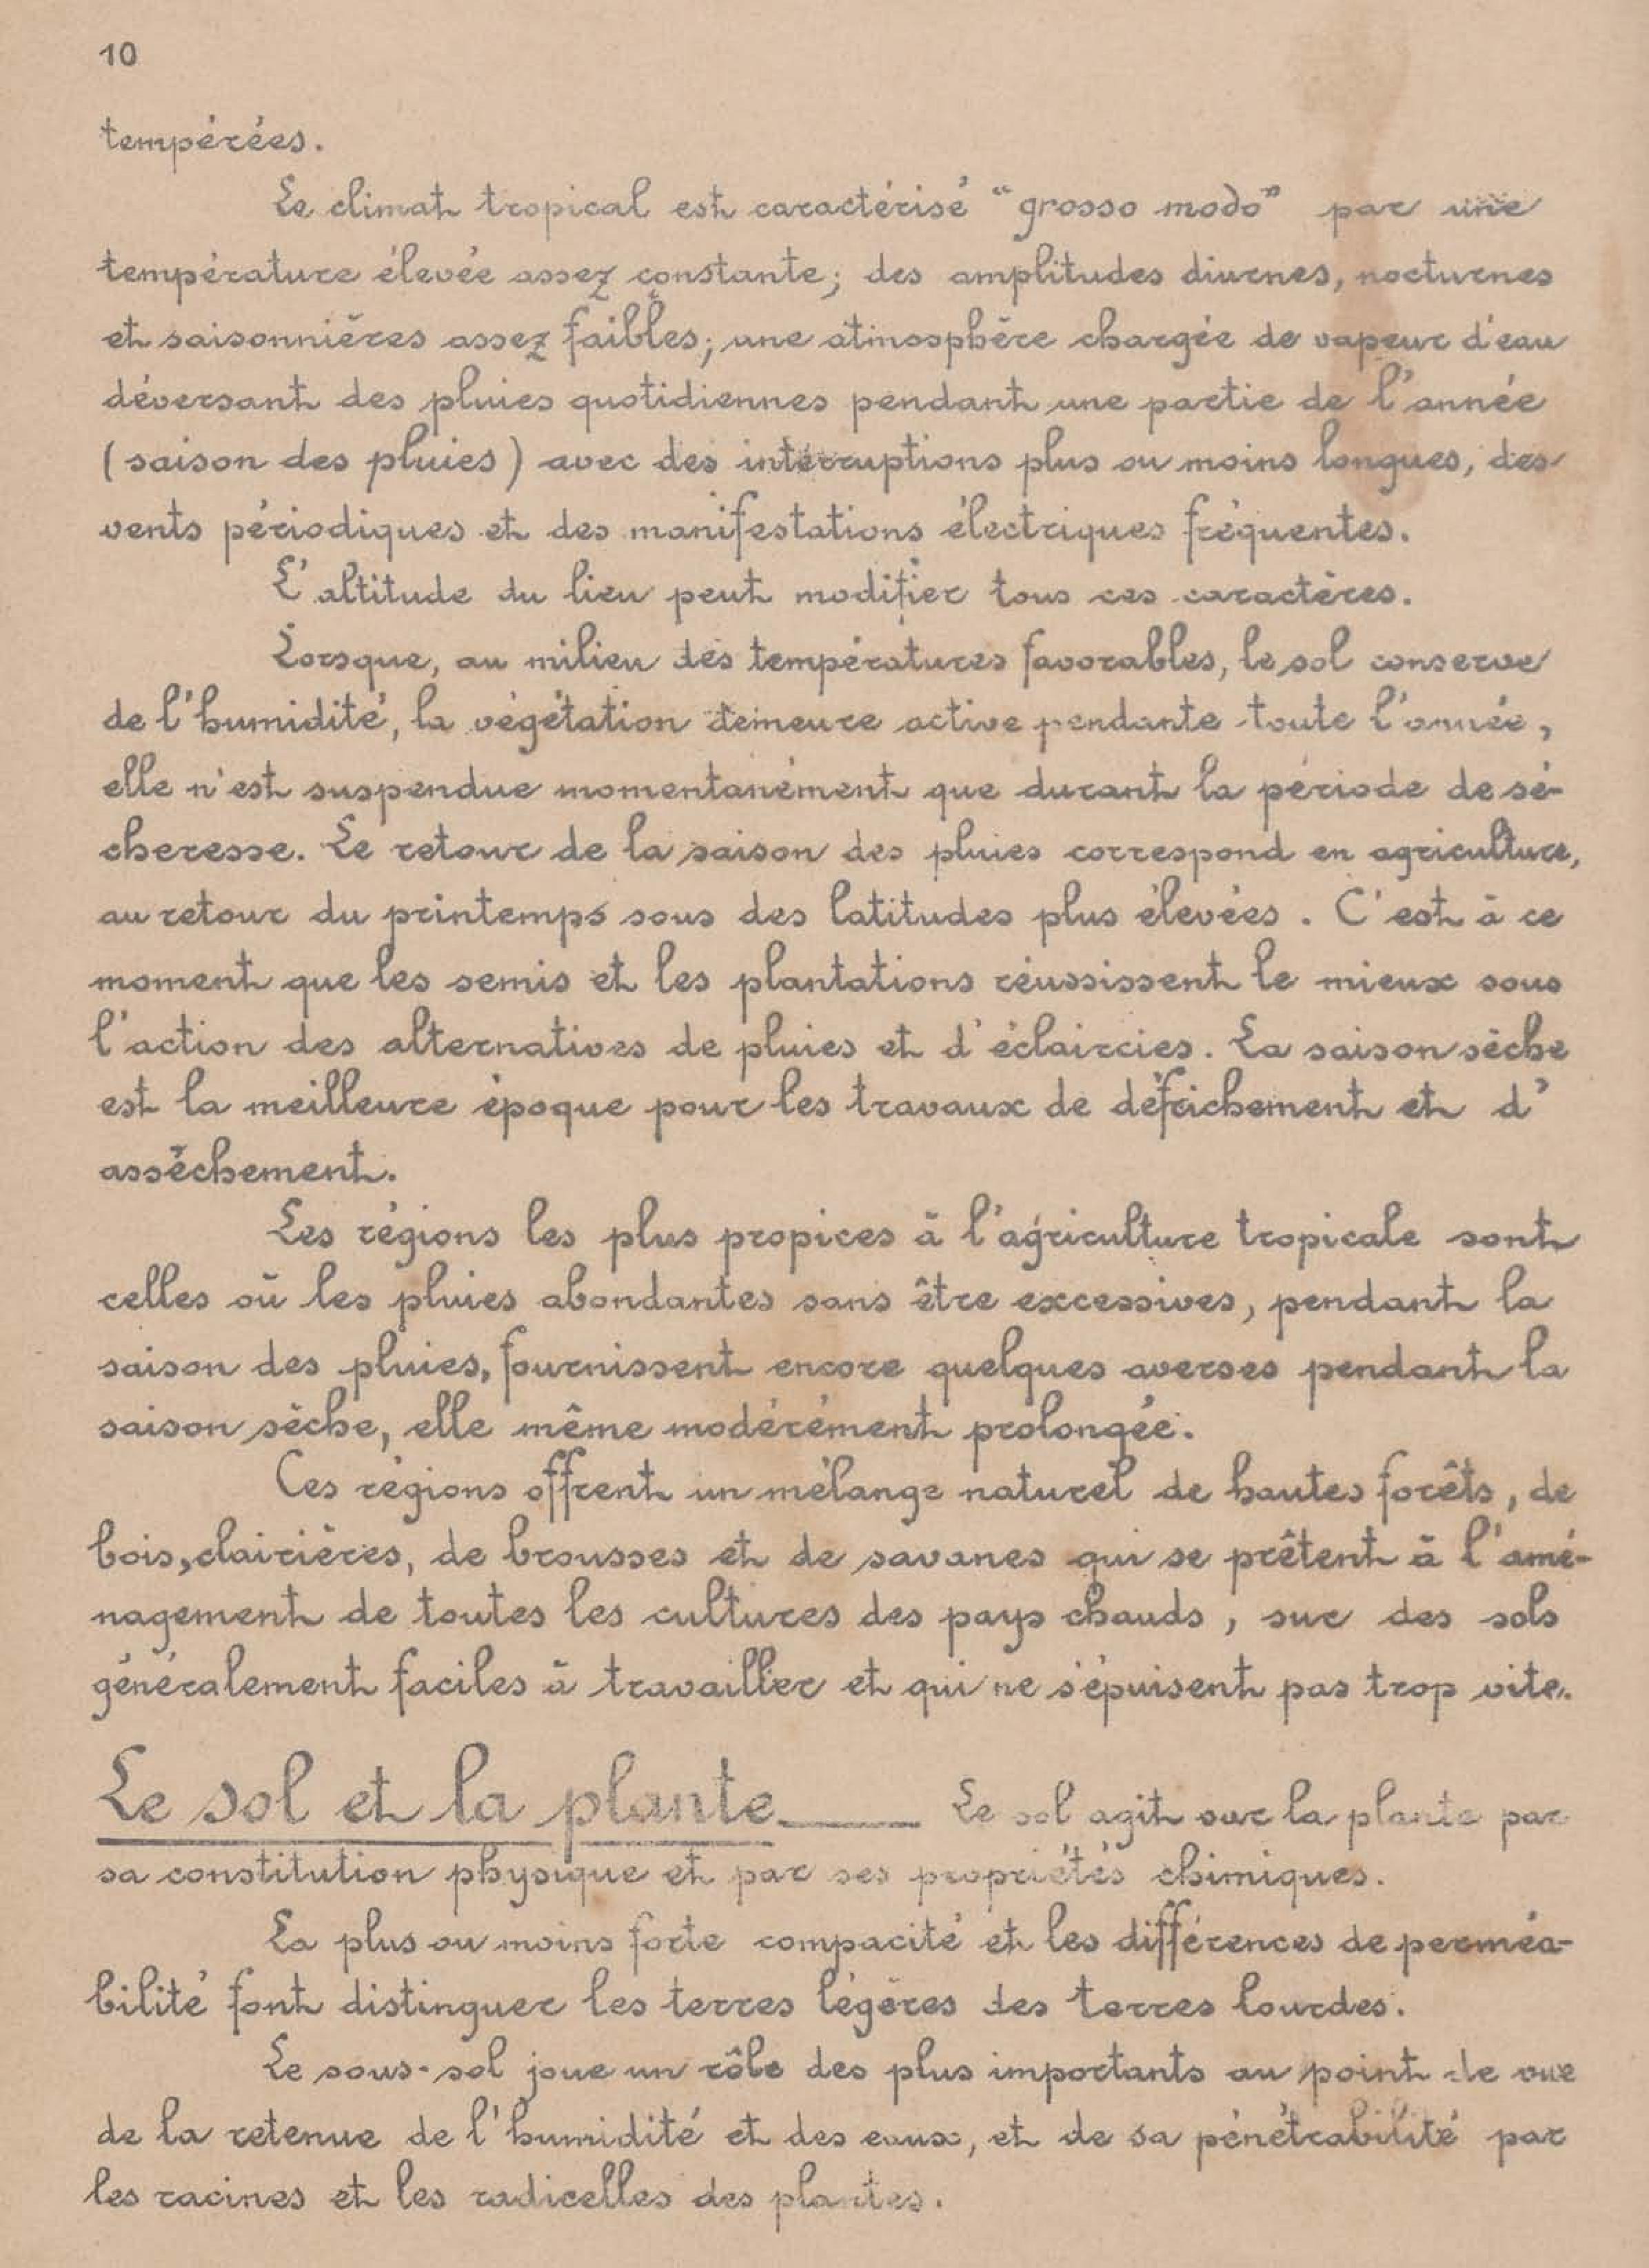 10
tempérées.
Le climat tropical est caractérisé "grosso modo" par une
température élevée assez constante; des amplitudes diurnes, nocturnes
et saisonnières assez faibles; une atmosphère chargée de vapeur d'eau
déversant des pluies quotidiennes pendant une partie de l'année
(saison des pluies) avec des interruptions plus ou moins longues, des
vents périodiques et des manifestations électriques fréquentes.
L'altitude du lieu peut modifier tous ces caractères.
Lorsque, au milieu des températures favorables, le sol conserve
de l'humidité, la végétation demeure active pendante toute l'année,
elle n'est suspendue momentanément que durant la période de sé-
cheresse. Le retour de la saison des pluies correspond en agriculture,
au retour du printemps sous des latitudes plus élevées. C'est à ce
moment que les semis et les plantations réussissent le mieux sous
l'action des alternatives de pluies et d'éclaircies. La saison sèche
est la meilleure époque pour les travaux de défrichement et d'
assèchement.
Les régions les plus propices à l'agriculture tropicale sont
celles où les pluies abondantes sans être excessives, pendant la
saison des pluies, fournissent encore quelques averses pendant la
saison sèche, elle même modérément prolongée.
Ces régions offrent un mélange naturel de hautes forêts, de
bois, clairières, de brousses et de savanes qui se prêtent à l'amé-
nagement de toutes les cultures des pays chauds, sur des sols
généralement faciles à travailler et qui ne s'épuisent pas trop vite.
Le sol et la plante___ Le sol agit sur la plante par
sa constitution physique et par ses propriétés chimiques.
La plus ou moins forte compacité et les différences de perméa-
bilité font distinguer les terres légères des terres lourdes.
Le sous-sol joue un rôle des plus importants au point de vue
de la retenue de l'humidité et des eaux, et de sa pénétrabilité par
les racines et les radicelles des plantes.